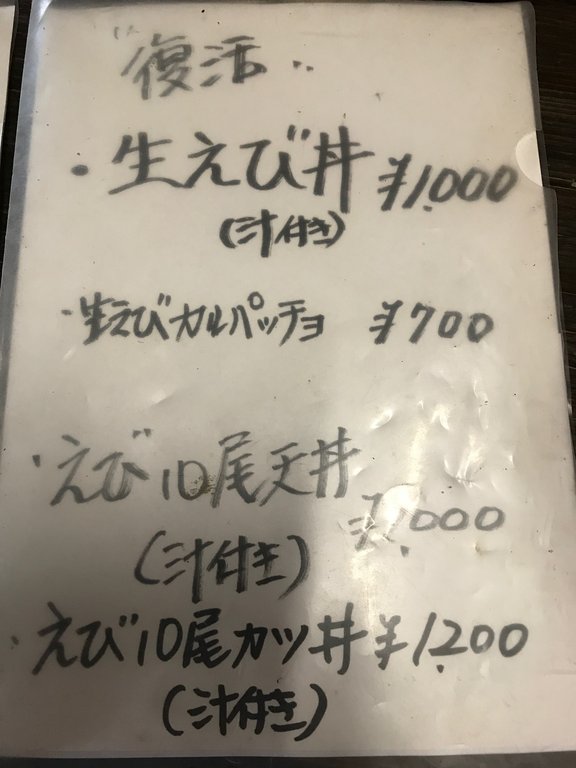 "復活"
・生えび丼 ¥1,000
(汁付き)
・生えびカルパッチョ ¥700
・えび10尾天丼
¥1,000
(汁付き)
・えび10尾カツ丼 ¥1,200
(汁付き)